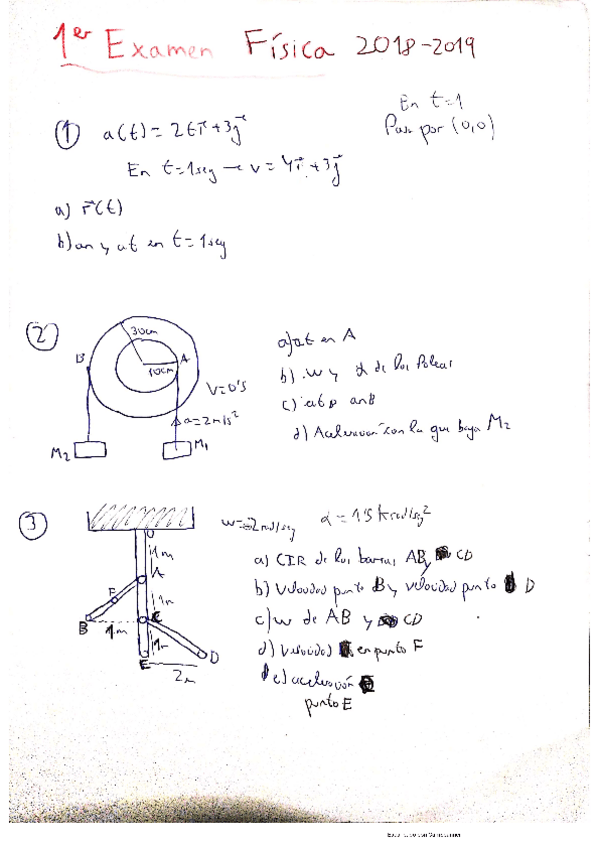 1er Examen Física 2018-2019
① a(t) = 2t i⃗ + 3j⃗
En t=1
Pasa por (0,0)
En t=1seg → v = 4i⃗ + 3j⃗
a) r⃗(t)
b) an y at en t=1seg
②
30cm
10cm
B
A
V=0'5
a=2m/s²
M2
M1
a) at en A
b) w y α de las Poleas
c) atB anB
d) Aceleración con la que baja M2
③
w=2rad/seg
O
1m
A
1m
F
B
1m
C
1m
E
D
2m
a) CIR de las barras AB y CD
b) Velocidad punto B y velocidad punto D
c) w de AB y CD
d) Velocidad en punto F
e) aceleración
punto E